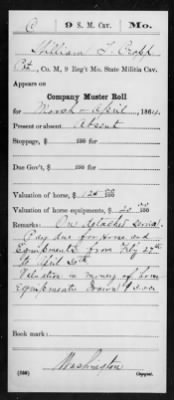 C 9 S. M. Cav. Mo.
William T. Cropp
Pvt., Co. M, 9 Reg't Mo. State Militia Cav.
Appears on
Company Muster Roll
for March & April, 1864.
Present or absent Absent
Stoppage, $ 100 for
Due Gov't, $ 100 for
Valuation of horse, $ 125 00/100
Valuation of horse equipments, $ 20 00/100
Remarks: On detached service
Pay due for Horse and
Equipments from Feby 29th
to April 30th
Valuation in money of horse
Equipments drawn
Book mark:
Washington
(536) Copyist.